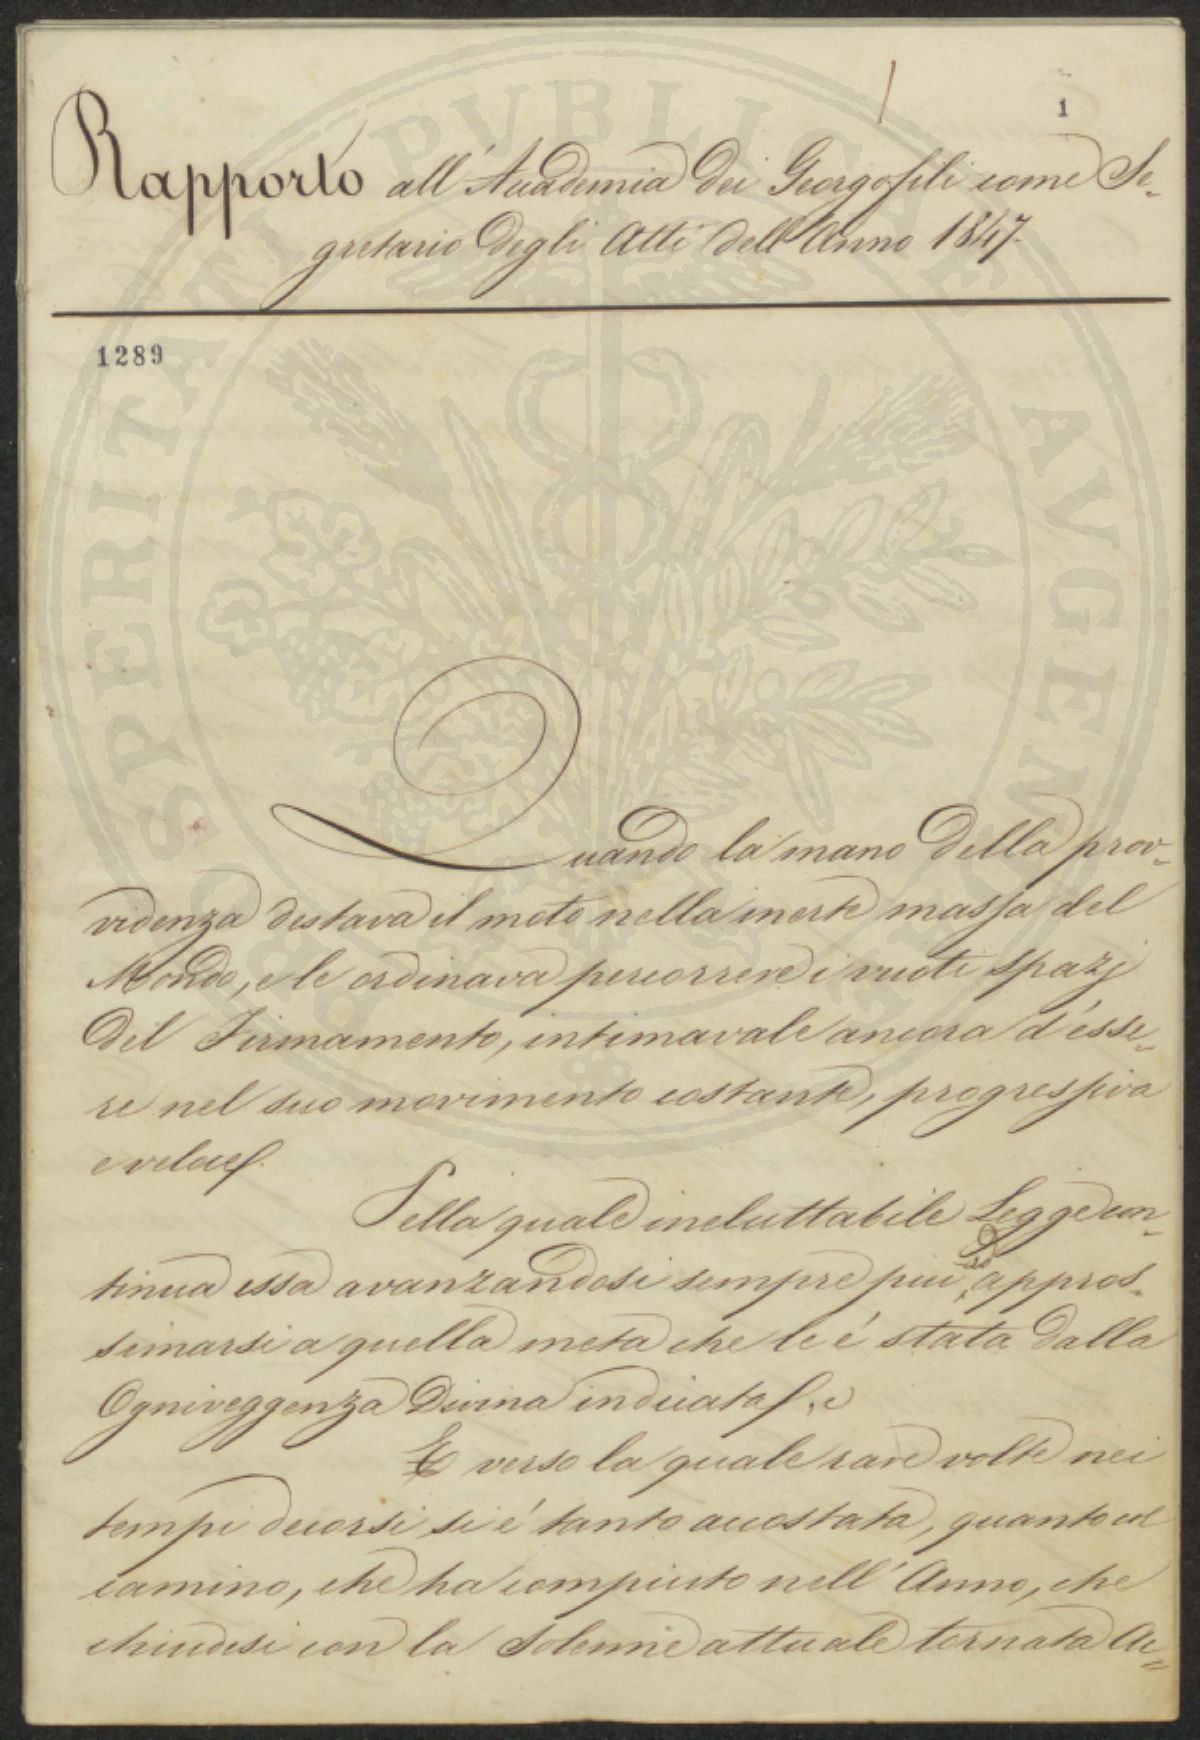 1
Rapporto all'Accademia dei Georgofili come Se=
gretario degli Atti dell'Anno 1847.
1289
Quando la mano della prov=
videnza destava il moto nella inerte massa del
Mondo, e le ordinava percorrere i vuoti spazj
del Firmamento, intimavale ancora d'esse=
re nel suo movimento costante, progressiva
e veloce.
Nella quale ineluttabile Legge con=
tinua essa avanzandosi sempre più, ad appros=
simarsi a quella meta che le è stata dalla
Ogniveggenza Divina indicata, e
E verso la quale rare volte nei
tempi decorsi si è tanto accostata, quanto col
camino, che ha compiuto nell'Anno, che
chiudesi con la Solenne attuale tornata Ac=
PROSPERITATI PVBLICAE AVGENDAE